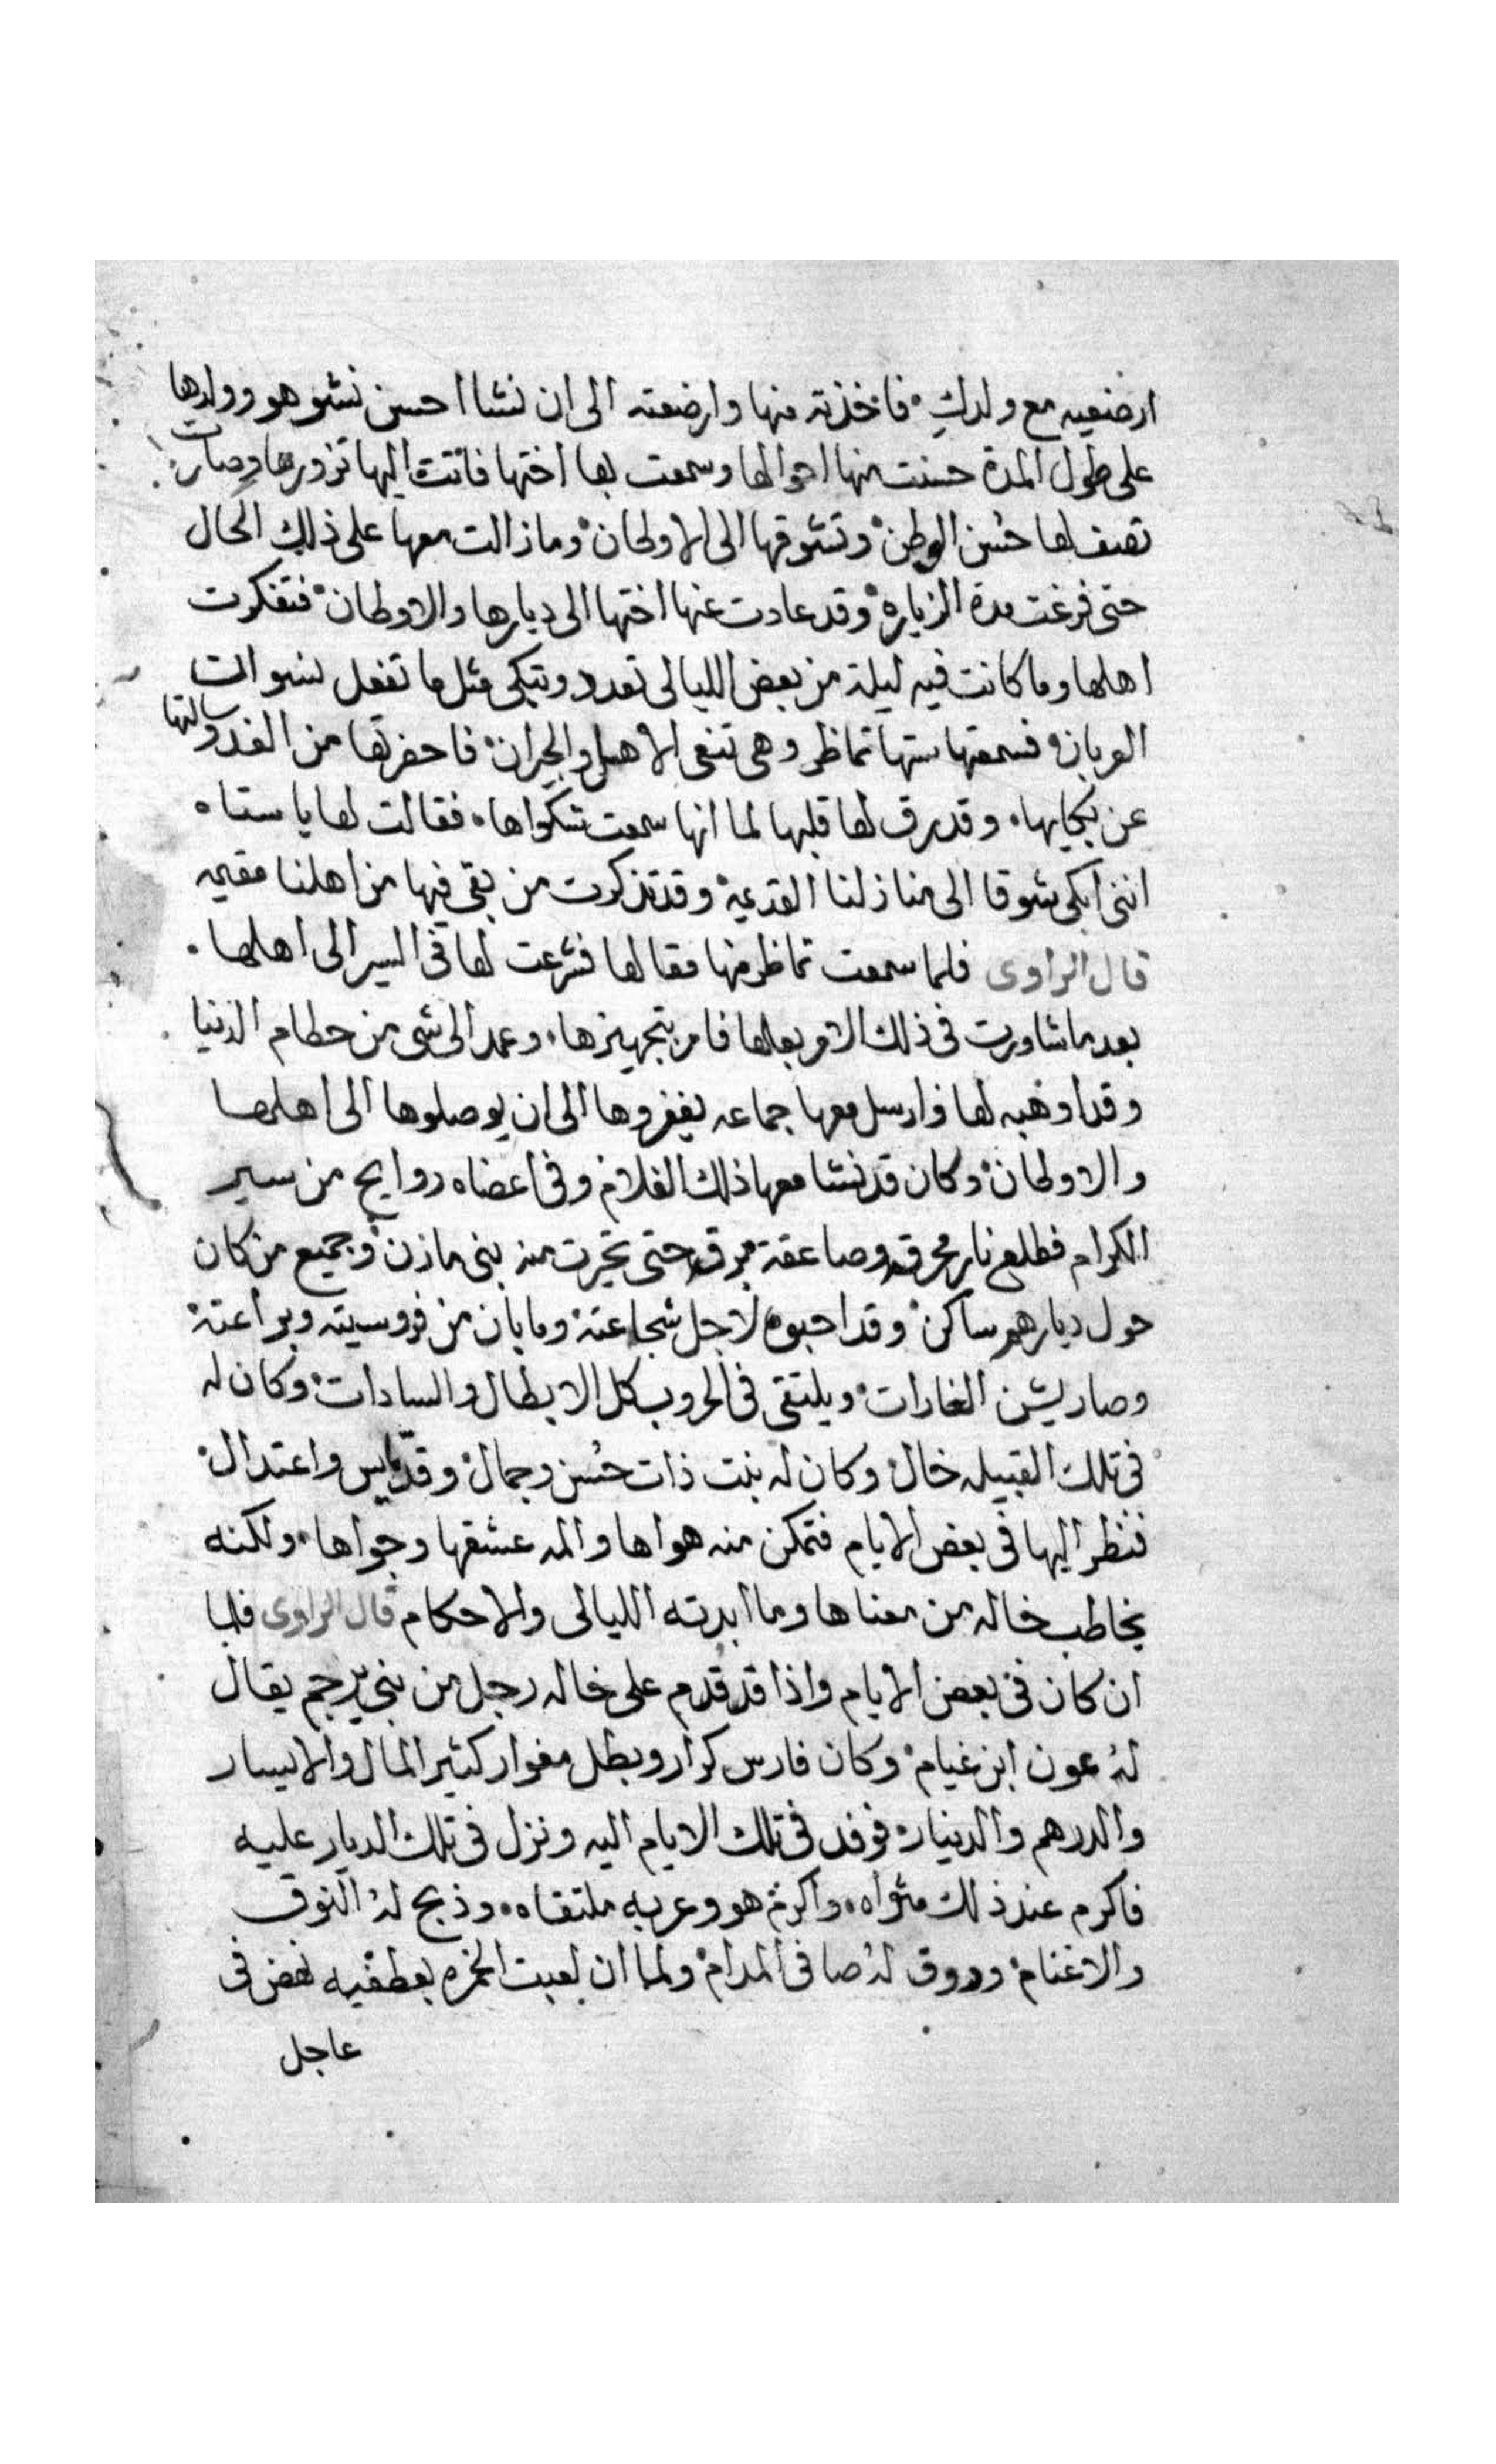 ارضعيه مع ولدكِ فاخذته منها وارضعته الى ان نشا احسن نشو هو وولدها
على طول المدة حسنت منها احوالها وسمعت بها اختها فاتت اليها تزورها وصارت
تصف لها حُسن الوطن وتشوقها الى الاوطان وما زالت معها على ذلك الحال
حتى فرغت مدة الزياره وقد عادت عنها اختها الى ديارها والاوطان فتفكرت
اهلها وما كانت فيه ليلة من بعض الليالى تعدد وتبكى مثل ما تفعل نسوات
العربان فسمعتها ستها تماظر وهى تنعى الاهل والجيران فاحضرتها من الغد وسالتها
عن بكايها وقد رق لها قلبها لما انها سمعت شكواها فقالت لها يا ستاه
اننى ابكى شوقا الى منازلنا القديمة وقد تذكرت من بقى فيها من اهلنا مقيمه
قال الراوى فلما سمعت تماظر منها مقالها فشرعت لها فى السير الى اهلها
بعد ما شاورت فى ذلك الامر بعلها فامر بتجهيزها وعمد الى شى من حطام الدنيا
وقد اوهبه لها وارسل معها جماعه يغفروها الى ان يوصلوها الى اهلها
والاوطان وكان قد نشا معها ذلك الغلام وفى اعضاه روايح من سير
الكرام فطلع نار محرقه وصاعقة مبرقه حتى تحيرت منه بنى مازن وجميع من كان
حول ديارهم ساكن وقد احبوه لاجل شجاعته وما بان من فروسيته وبراعته
وصار يشن الغارات ويلتقى فى الحروب كل الابطال والسادات وكان له
فى تلك القبيله خال وكان له بنت ذات حُسن وجمال وقد مايس واعتدال
فنظر اليها فى بعض الايام فتمكن منه هواها والمه عشقها وجواها ولكنه
يخاطب خاله من معناها وما ابدته الليالى والاحكام قال الراوى فلما
ان كان فى بعض الايام واذا قد قدم على خاله رجل من بنى يرجم يقال
لهُ عون ابن غيام وكان فارس كرار وبطل مغوار كثير المال والايسار
والدرهم والدينار فوفد فى تلك الايام اليه ونزل فى تلك الديار عليه
فاكرم عند ذلك مثواه واكرم هو وعربه ملتقاه وذبح لهُ النوق
والاغنام وروق لهُ صافى المدام ولما ان لعبت الخمره بعطفيه نهض فى
عاجل